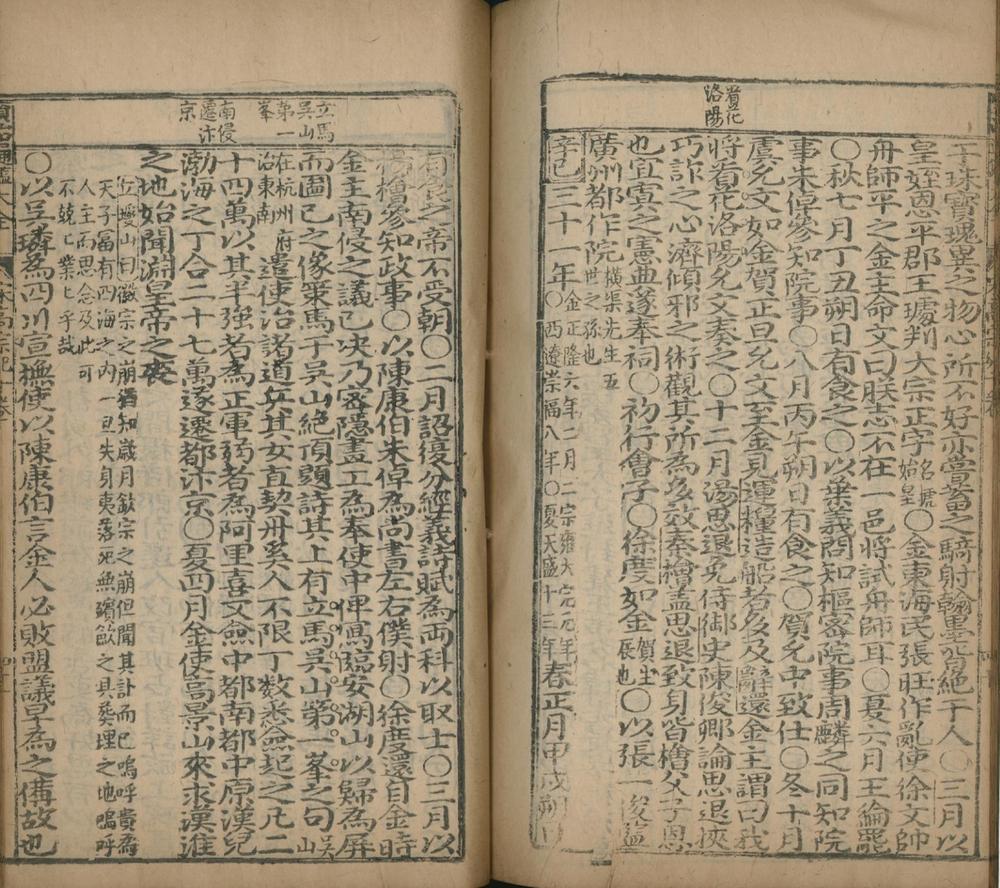 看花
洛陽
工珠寶瑰異之物心所不好亦嘗蓄之騎射翰墨皆絕于人〇三月以
皇姪恩平郡王璩判大宗正字名璩始皇〇金東海民張旺作亂使徐文帥
舟師平之金主命文曰朕志不在一邑將試舟師耳〇夏六月王綸罷
〇秋七月丁丑朔日有食之〇以葉義問知樞密院事周麟之同知院
事朱倬參知院事〇八月丙午朔日有食之〇賀允中致仕〇冬十月
虞允文如金賀正旦允文至金見運糧造船者多及辭還金主謂曰我
將看花洛陽允文奏之〇十二月湯思退免侍御史陳俊卿論思退挾
巧詐之心濟傾邪之術觀其所為多效秦檜蓋思退致身皆檜父子恩
也宜寘之憲典遂奉祠〇初行會子〇徐度如金賀生辰也〇以張一俊蓋
廣州都作院橫渠先生五世之孫也
辛巳三十一年〇金正隆六年二月二宗雍大定元年〇西遼崇福八年〇夏天盛十三年春正月甲戌朔日
立馬
吳山
第一
峯
南侵
遷汴
京
有食之帝不受朝〇二月詔復分經義詩賦為兩科以取士〇三月以
楊椿參知政事〇以陳康伯朱倬為尚書左右僕射〇徐度還自金時
金主南侵之議已決乃密隱畫工為奉使中俾寫臨安湖山以歸為屏
而圖已之像策馬于吳山絕頂題詩其上有立馬吳山第一峯之句吳山
在杭州府治東南遣使治諸道兵其女直契丹奚人不限丁數悉僉起之凡二
十四萬以其半強者為正軍弱者為阿里喜又僉中都南都中原漢兒
渤海之丁合二十七萬遂遷都汴京〇夏四月金使高景山來求漢淮
之地始聞淵皇帝之喪
丘瓊山曰徽宗之崩猶知歲月欽宗之崩但聞其訃而已嗚呼貴為
天子富有四海之內一旦失身夷落死無殯歛之具葬埋之地嗚呼
人主而思念及此可
不兢乚業乚乎哉
〇以吳璘為四川宣撫使以陳康伯言金人必敗盟議早為之備故也